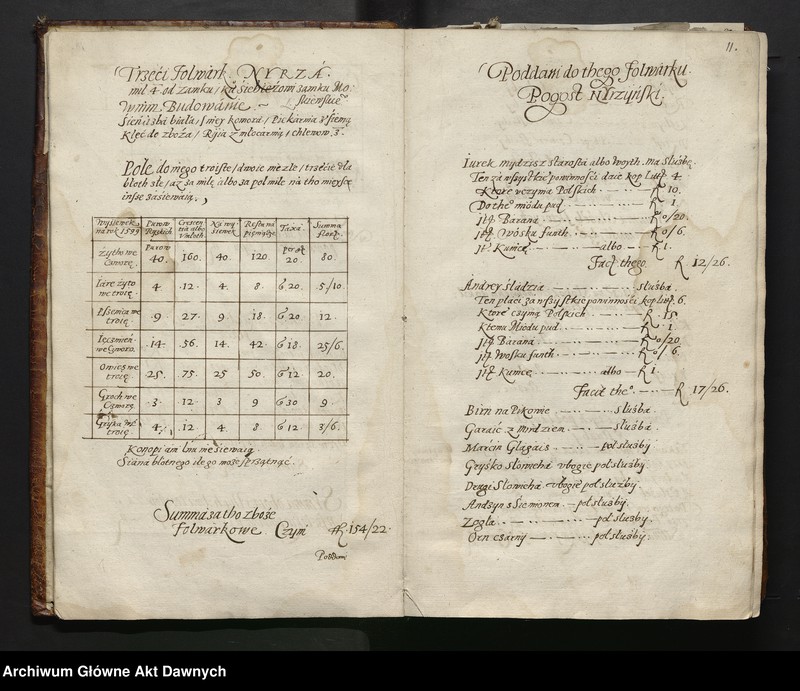 Trzeći Folwark. NYRZÁ.
mil 4 od zamku / ku Siebieżowi zamku Mo:
Wnim Budowanie. ~ skiewskie
Sień izba biała / s niey komora / Piekarnia z sienią
Kleć de zboża / Rÿia z młocarnią / chlewow. 3.
Pole do niego troiste / dwoie niezłe / trzecie dla
błoth złe / az za milę albo za poł mile na tho mieysce
insze zasiewaią.
Wysiewek na rok 1599 | Purow Ryskich | | Na wysiewek | Resta na pieniądze | Taxa. | Summa floch.
Zÿtho we czworo. | Purow 40. | 160. | 40. | 120. | per ... 20 | 80.
Iare żyto we troię. | 4. | 12. | 4. | 8. | G 20. | 5/10.
Pszenica we troię. | 9. | 27. | 9. | 18. | G 20 | 12.
Ięczmień we czworo. | 14. | 56. | 14. | 42. | G 18. | 25/6.
Owies we troię. | 25. | 75. | 25 | 50. | G 12. | 20.
Groch we czworo. | 3. | 12. | 3 | 9 | G 30 | 9.
Gryka we troię. | 4. | 12. | 4. | 8. | G 12. | 3/6.
Konopi ani lnu nie siewaią
Siana błotnego ile go może sprzątnąć.
Summa za tho zboże
folwarkowe Czyni R. 154/22.
Poddani
11.
Poddani do thego folwarku.
Pogost Nyrzyński.
Iurek mydzisz starosta albo Woyth. ma Służbę.
Ten za wszystkie powinności daie kop Lith. 4.
Ktore vczynią Polskich R. 10.
Do the° miodu pud R. 1
Jt. Barana R. 0/20.
Jt. Wosku funth. R. 0/6.
Jt. Kunicę albo R. 1.
Facit thego. R. 12/26.
Andrey sładzia służba.
Ten płaci za wszystkie powinności kop Lith. 6.
Ktore czynią Polskich R. 15
K temu Miodu pud. R. 1
Jt. Barana R. 0/20
Jt. Wosku funth. R. 0/6.
Jt. Kunicę albo R. 1.
Facit the°. R. 17/26.
Birn na Pikowie służba.
Garaić z mrdziem służba
Marcin Głagais poł służby
Gryśko słowicha vbogie poł służby.
Drugi Słowicha vbogie poł służby.
Andszyn s Siemonem poł służby.
Zogla poł służby.
Orn czarny poł służby.
Archiwum Główne Akt Dawnych